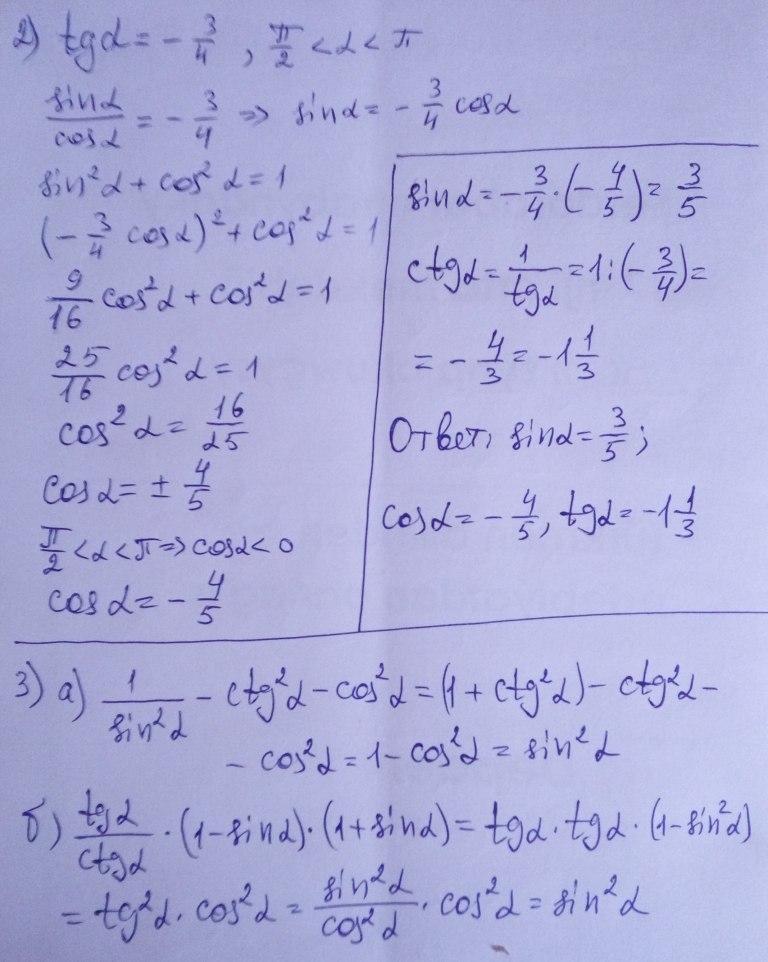 2) tgα = -3/4 , π/2 < α < π
sinα/cosα = -3/4 ⇒ sinα = -3/4 cosα
sin²α + cos²α = 1
(-3/4 cosα)² + cos²α = 1
9/16 cos²α + cos²α = 1
25/16 cos²α = 1
cos²α = 16/25
cosα = ± 4/5
π/2 < α < π ⇒ cosα < 0
cosα = -4/5
sinα = -3/4 · (-4/5) = 3/5
ctgα = 1/tgα = 1 : (-3/4) =
= -4/3 = -1 1/3
Ответ: sinα = 3/5;
cosα = -4/5, tgα = -1 1/3
3) а) 1/sin²α - ctg²α - cos²α = (1 + ctg²α) - ctg²α -
- cos²α = 1 - cos²α = sin²α
б) tgα/ctgα · (1-sinα) · (1+sinα) = tgα · tgα · (1-sin²α)
= tg²α · cos²α = sin²α/cos²α · cos²α = sin²α